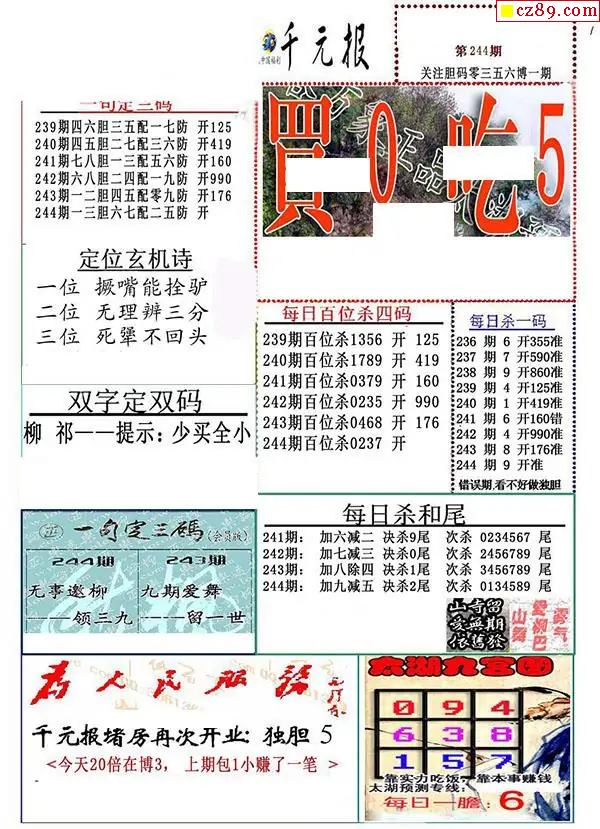 cz89.com
千元报
中国福利
第244期
关注胆码零三五六博一期
買0吃5
一句定三码
239期四六胆三五配一七防 开125
240期四五胆二七配三六防 开419
241期七八胆一三配五六防 开160
242期六八胆二四配一九防 开990
243期一二胆四五配零九防 开176
244期一三胆六七配二五防 开
定位玄机诗
一位 撅嘴能拴驴
二位 无理辨三分
三位 死犟不回头
每日百位杀四码
239期百位杀1356 开 125
240期百位杀1789 开 419
241期百位杀0379 开 160
242期百位杀0235 开 990
243期百位杀0468 开 176
244期百位杀0237 开
每日杀一码
236 期 6 开355准
237 期 7 开590准
238 期 9 开860准
239 期 4 开125准
240 期 1 开419准
241 期 6 开160错
242 期 4 开990准
243 期 8 开176准
244 期 9 开准
错误期,看不好做独胆
双字定双码
柳 祁——提示:少买全小
一句定三碼(会员版)
244期
无事邀柳
——领三九
243期
九期爱舞
——留一世
每日杀和尾
241期: 加六减二 决杀9尾 次杀 0234567 尾
242期: 加七减三 决杀0尾 次杀 2456789 尾
243期: 加八除四 决杀1尾 次杀 3456789 尾
244期: 加九减五 决杀2尾 次杀 0134589 尾
山寺留
妄無期
依舊發
雾气
愛柳巴
山舞
为人民服务
千元报堵房再次开业: 独胆 5
<今天20倍在博3, 上期包1小赚了一笔 >
太湖九宫图
0 9 4
6 3 8
1 5 7
靠实力吃饭, 靠本事赚钱
太湖预测专线:
每日一膽: 6